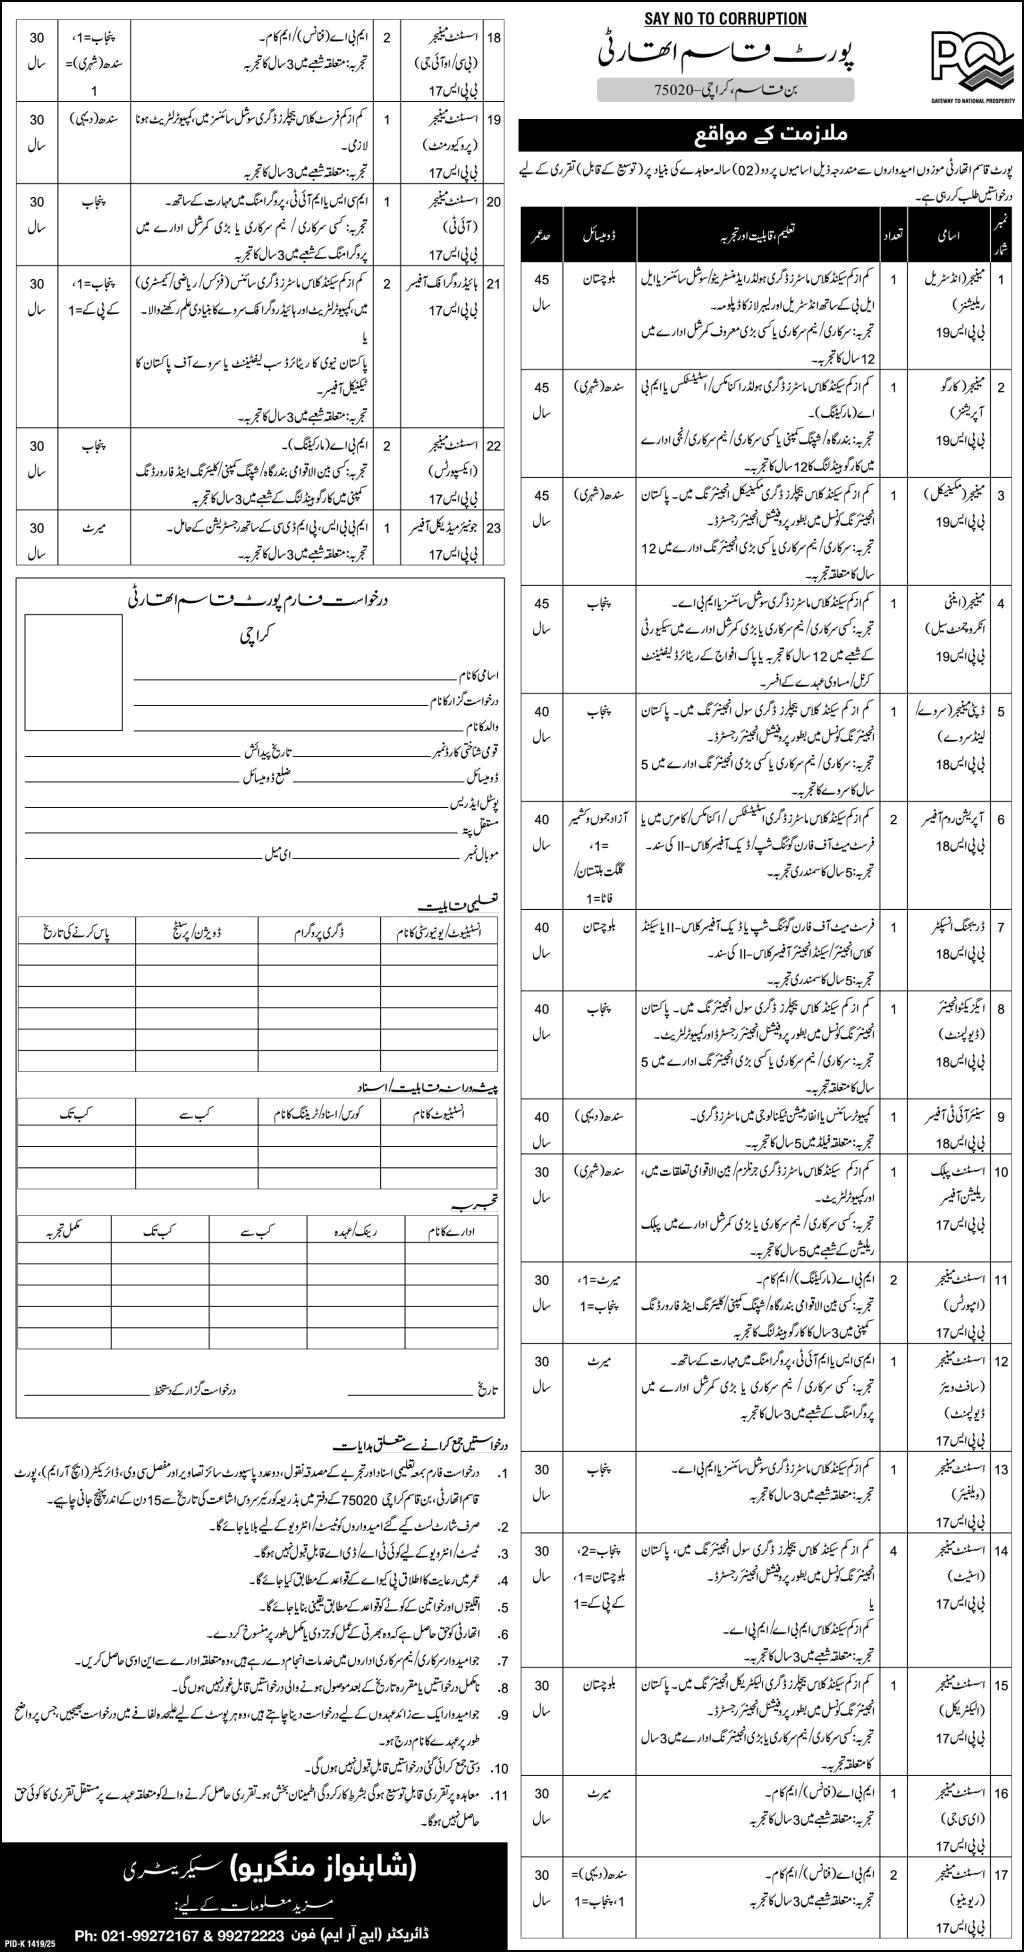 SAY NO TO CORRUPTION
پورٹ قاسم اتھارٹی
بن قاسم، کراچی–75020
PQA
GATEWAY TO NATIONAL PROSPERITY
ملازمت کے مواقع
پورٹ قاسم اتھارٹی موزوں امیدواروں سے مندرجہ ذیل اسامیوں پر دو (02) سالہ معاہدے کی بنیاد پر (توسیع کے قابل) تقرری کے لیے
درخواستیں طلب کر رہی ہے۔
نمبر شمار | اسامی | تعداد | تعلیم، قابلیت اور تجربہ | ڈومیسائل | حد عمر
1 | مینیجر (انڈسٹریل ریلیشنز) بی پی ایس 19 | 1 | کم از کم سیکنڈ کلاس ماسٹرز ڈگری ہولڈر ایڈمنسٹریٹو/سوشل سائنسز یا ایل ایل بی کے ساتھ انڈسٹریل اور لیبر لاز کا ڈپلومہ۔ تجربہ: سرکاری/نیم سرکاری یا کسی بڑی معروف کمرشل ادارے میں 12 سال کا تجربہ۔ | بلوچستان | 45 سال
2 | مینیجر (کارگو آپریشنز) بی پی ایس 19 | 1 | کم از کم سیکنڈ کلاس ماسٹرز ڈگری ہولڈر اکنامکس/اسٹیٹسٹکس یا ایم بی اے (مارکیٹنگ)۔ تجربہ: بندرگاہ/شپنگ کمپنی یا کسی سرکاری/نیم سرکاری/نجی ادارے میں کارگو ہینڈلنگ کا 12 سال کا تجربہ۔ | سندھ (شہری) | 45 سال
3 | مینیجر (مکینیکل) بی پی ایس 19 | 1 | کم از کم سیکنڈ کلاس بیچلرز ڈگری مکینیکل انجینئرنگ میں۔ پاکستان انجینئرنگ کونسل میں بطور پروفیشنل انجینئر رجسٹرڈ۔ تجربہ: سرکاری/نیم سرکاری یا کسی بڑی انجینئرنگ ادارے میں 12 سال کا متعلقہ تجربہ۔ | سندھ (شہری) | 45 سال
4 | مینیجر (اینٹی انکروچمنٹ سیل) بی پی ایس 19 | 1 | کم از کم سیکنڈ کلاس ماسٹرز ڈگری سوشل سائنسز یا ایم بی اے۔ تجربہ: کسی سرکاری/نیم سرکاری یا بڑی کمرشل ادارے میں سیکیورٹی کے شعبے میں 12 سال کا تجربہ یا پاک افواج کے ریٹائرڈ لیفٹیننٹ کرنل/مساوی عہدے کے افسر۔ | پنجاب | 45 سال
5 | ڈپٹی مینیجر (سروے/لینڈ سروے) بی پی ایس 18 | 1 | کم از کم سیکنڈ کلاس بیچلرز ڈگری سول انجینئرنگ میں۔ پاکستان انجینئرنگ کونسل میں بطور پروفیشنل انجینئر رجسٹرڈ۔ تجربہ: سرکاری/نیم سرکاری یا کسی بڑی انجینئرنگ ادارے میں 5 سال کا سروے کا تجربہ۔ | پنجاب | 40 سال
6 | آپریشن روم آفیسر بی پی ایس 18 | 2 | کم از کم سیکنڈ کلاس ماسٹرز ڈگری اسٹیٹسٹکس/اکنامکس/کامرس میں یا فرسٹ میٹ آف فارن گوئنگ شپ/ڈیک آفیسر کلاس-II کی سند۔ تجربہ: 5 سال کا سمندری تجربہ۔ | آزاد جموں و کشمیر =1، گلگت بلتستان/فاٹا=1 | 40 سال
7 | ڈریجنگ انسپکٹر بی پی ایس 18 | 1 | فرسٹ میٹ آف فارن گوئنگ شپ یا ڈیک آفیسر کلاس-II یا سیکنڈ کلاس انجینئر/سیکنڈ انجینئر آفیسر کلاس-II کی سند۔ تجربہ: 5 سال کا سمندری تجربہ۔ | بلوچستان | 40 سال
8 | ایگزیکٹو انجینئر (ڈیولپمنٹ) بی پی ایس 18 | 1 | کم از کم سیکنڈ کلاس بیچلرز ڈگری سول انجینئرنگ میں۔ پاکستان انجینئرنگ کونسل میں بطور پروفیشنل انجینئر رجسٹرڈ اور کمپیوٹر لٹریٹ۔ تجربہ: سرکاری/نیم سرکاری یا کسی بڑی انجینئرنگ ادارے میں 5 سال کا متعلقہ تجربہ۔ | پنجاب | 40 سال
9 | سینئر آئی ٹی آفیسر بی پی ایس 18 | 1 | کمپیوٹر سائنس یا انفارمیشن ٹیکنالوجی میں ماسٹرز ڈگری۔ تجربہ: متعلقہ فیلڈ میں 5 سال کا تجربہ۔ | سندھ (دیہی) | 40 سال
10 | اسسٹنٹ پبلک ریلیشن آفیسر بی پی ایس 17 | 1 | کم از کم سیکنڈ کلاس ماسٹرز ڈگری جرنلزم/بین الاقوامی تعلقات میں، اور کمپیوٹر لٹریٹ۔ تجربہ: کسی سرکاری/نیم سرکاری یا بڑی کمرشل ادارے میں پبلک ریلیشن کے شعبے میں 5 سال کا تجربہ۔ | سندھ (شہری) | 30 سال
11 | اسسٹنٹ مینیجر (امپورٹس) بی پی ایس 17 | 2 | ایم بی اے (مارکیٹنگ)/ایم کام۔ تجربہ: کسی بین الاقوامی بندرگاہ/شپنگ کمپنی/کلیئرنگ اینڈ فارورڈنگ کمپنی میں 3 سال کا کارگو ہینڈلنگ کا تجربہ | میرٹ=1، پنجاب=1 | 30 سال
12 | اسسٹنٹ مینیجر (سافٹ ویئر ڈیولپمنٹ) بی پی ایس 17 | 1 | ایم سی ایس یا ایم آئی ٹی، پروگرامنگ میں مہارت کے ساتھ۔ تجربہ: کسی سرکاری/نیم سرکاری یا بڑی کمرشل ادارے میں پروگرامنگ کے شعبے میں 3 سال کا تجربہ | میرٹ | 30 سال
13 | اسسٹنٹ مینیجر (ویلفیئر) بی پی ایس 17 | 1 | کم از کم سیکنڈ کلاس ماسٹرز ڈگری سوشل سائنسز یا ایم بی اے۔ تجربہ: متعلقہ شعبے میں 3 سال کا تجربہ | پنجاب | 30 سال
14 | اسسٹنٹ مینیجر (اسٹیٹ) بی پی ایس 17 | 4 | کم از کم سیکنڈ کلاس بیچلرز ڈگری سول انجینئرنگ میں، پاکستان انجینئرنگ کونسل میں بطور پروفیشنل انجینئر رجسٹرڈ۔ یا کم از کم سیکنڈ کلاس ایم بی اے/ایم پی اے۔ تجربہ: متعلقہ شعبے میں 3 سال کا تجربہ | پنجاب=2، بلوچستان=1، کے پی کے=1 | 30 سال
15 | اسسٹنٹ مینیجر (الیکٹریکل) بی پی ایس 17 | 1 | کم از کم سیکنڈ کلاس بیچلرز ڈگری الیکٹریکل انجینئرنگ میں۔ پاکستان انجینئرنگ کونسل میں بطور پروفیشنل انجینئر رجسٹرڈ۔ تجربہ: کسی سرکاری/نیم سرکاری یا بڑی انجینئرنگ ادارے میں 3 سال کا متعلقہ تجربہ۔ | بلوچستان | 30 سال
16 | اسسٹنٹ مینیجر (ای سی جی) بی پی ایس 17 | 1 | ایم بی اے (فنانس)/ایم کام۔ تجربہ: متعلقہ شعبے میں 3 سال کا تجربہ | میرٹ | 30 سال
17 | اسسٹنٹ مینیجر (ریونیو) بی پی ایس 17 | 2 | ایم بی اے (فنانس)/ایم کام۔ تجربہ: متعلقہ شعبے میں 3 سال کا تجربہ | سندھ (دیہی)=1، پنجاب=1 | 30 سال
18 | اسسٹنٹ مینیجر (بی سی/او آئی جی) بی پی ایس 17 | 2 | ایم بی اے (فنانس)/ایم کام۔ تجربہ: متعلقہ شعبے میں 3 سال کا تجربہ | پنجاب=1، سندھ (شہری)=1 | 30 سال
19 | اسسٹنٹ مینیجر (پروکیورمنٹ) بی پی ایس 17 | 1 | کم از کم فرسٹ کلاس بیچلرز ڈگری سوشل سائنسز میں، کمپیوٹر لٹریٹ ہونا لازمی۔ تجربہ: متعلقہ شعبے میں 3 سال کا تجربہ | سندھ (دیہی) | 30 سال
20 | اسسٹنٹ مینیجر (آئی ٹی) بی پی ایس 17 | 1 | ایم سی ایس یا ایم آئی ٹی، پروگرامنگ میں مہارت کے ساتھ۔ تجربہ: کسی سرکاری/نیم سرکاری یا بڑی کمرشل ادارے میں پروگرامنگ کے شعبے میں 3 سال کا تجربہ | پنجاب | 30 سال
21 | ہائیڈروگرافک آفیسر بی پی ایس 17 | 2 | کم از کم سیکنڈ کلاس ماسٹرز ڈگری سائنس (فزکس/ریاضی/کیمسٹری) میں، کمپیوٹر لٹریٹ اور ہائیڈروگرافک سروے کا بنیادی علم رکھنے والا۔ یا پاکستان نیوی کا ریٹائرڈ سب لیفٹیننٹ یا سروے آف پاکستان کا ٹیکنیکل آفیسر۔ تجربہ: متعلقہ شعبے میں 3 سال کا تجربہ۔ | پنجاب=1، کے پی کے=1 | 30 سال
22 | اسسٹنٹ مینیجر (ایکسپورٹس) بی پی ایس 17 | 2 | ایم بی اے (مارکیٹنگ)۔ تجربہ: کسی بین الاقوامی بندرگاہ/شپنگ کمپنی/کلیئرنگ اینڈ فارورڈنگ کمپنی میں کارگو ہینڈلنگ کے شعبے میں 3 سال کا تجربہ | پنجاب | 30 سال
23 | جونیئر میڈیکل آفیسر بی پی ایس 17 | 1 | ایم بی بی ایس، پی ایم ڈی سی کے ساتھ رجسٹریشن کے حامل۔ تجربہ: متعلقہ شعبے میں 3 سال کا تجربہ۔ | میرٹ | 30 سال
درخواست فارم پورٹ قاسم اتھارٹی
کراچی
اسامی کا نام
درخواست گزار کا نام
والد کا نام
قومی شناختی کارڈ نمبر تاریخ پیدائش
ڈومیسائل ضلع ڈومیسائل
پوسٹل ایڈریس
مستقل پتہ
موبائل نمبر ای میل
تعلیمی قابلیت
انسٹیٹیوٹ/یونیورسٹی کا نام | ڈگری پروگرام | ڈویژن/پرسنٹیج | پاس کرنے کی تاریخ
پیشہ ورانہ قابلیت/اسناد
انسٹیٹیوٹ کا نام | کورس/اسناد/ٹریننگ کا نام | کب سے | کب تک
تجربہ
ادارے کا نام | رینک/عہدہ | کب سے | کب تک | مکمل تجربہ
تاریخ درخواست گزار کے دستخط
درخواستیں جمع کرانے سے متعلق ہدایات
1. درخواست فارم بمعہ تعلیمی اسناد اور تجربے کے مصدقہ نقول، دو عدد پاسپورٹ سائز تصاویر اور مفصل سی وی، ڈائریکٹر (ایچ آر ایم)، پورٹ
قاسم اتھارٹی، بن قاسم کراچی 75020 کے دفتر میں بذریعہ کوریئر سروس اشاعت کی تاریخ سے 15 دن کے اندر پہنچ جانی چاہیے۔
2. صرف شارٹ لسٹ کیے گئے امیدواروں کو ٹیسٹ/انٹرویو کے لیے بلایا جائے گا۔
3. ٹیسٹ/انٹرویو کے لیے کوئی ٹی اے/ڈی اے قابل قبول نہیں ہوگا۔
4. عمر میں رعایت کا اطلاق پی کیو اے کے قواعد کے مطابق کیا جائے گا۔
5. اقلیتوں اور خواتین کے کوٹے کو قواعد کے مطابق یقینی بنایا جائے گا۔
6. اتھارٹی کو حق حاصل ہے کہ وہ بھرتی کے عمل کو جزوی یا مکمل طور پر منسوخ کر دے۔
7. جو امیدوار سرکاری/نیم سرکاری اداروں میں خدمات انجام دے رہے ہیں، وہ متعلقہ ادارے سے این او سی حاصل کریں۔
8. نامکمل درخواستیں یا مقررہ تاریخ کے بعد موصول ہونے والی درخواستیں قابل غور نہیں ہوں گی۔
9. جو امیدوار ایک سے زائد عہدوں کے لیے درخواست دینا چاہتے ہیں، وہ ہر پوسٹ کے لیے علیحدہ لفافے میں درخواست بھیجیں، جس پر واضح
طور پر عہدے کا نام درج ہو۔
10. دستی جمع کرائی گئی درخواستیں قابل قبول نہیں ہوں گی۔
11. معاہدہ پر تقرری قابل توسیع ہوگی بشرط کارکردگی اطمینان بخش ہو۔ تقرری حاصل کرنے والے کو متعلقہ عہدے پر مستقل تقرری کا کوئی حق
حاصل نہیں ہوگا۔
(شاہنواز منگریو) سیکریٹری
مزید معلومات کے لیے:
ڈائریکٹر (ایچ آر ایم) فون Ph: 021-99272167 & 99272223
PID-K 1419/25